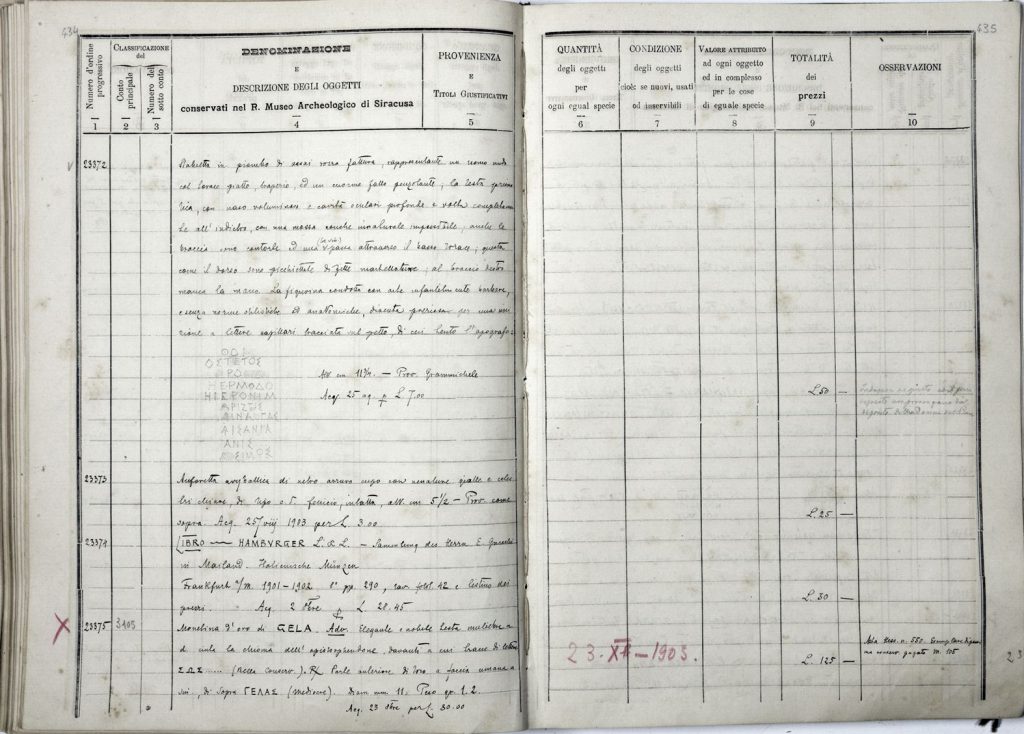 434
Numero d'ordine progressivo
Classificazione del
Conto principale
Numero del sotto conto
DENOMINAZIONE
E
DESCRIZIONE DEGLI OGGETTI
conservati nel R. Museo Archeologico di Siracusa
PROVENIENZA
E
Titoli Giustificativi
1 2 3 4 5
23872
in piombo di assai rozza fattura, rappresentante un uomo nudo
col torace piatto, ed un enorme fallo penzolante; la testa
con naso voluminoso e cavità oculari profonde e volta completamen
te all'indietro, con una mossa anche innaturale impossibile; anche le
braccia sono contorte ed una attraverso il basso torace; questa
come il dorso sono picchiettate di martellature; al braccio destro
manca la mano. La figurina condotta con arte infantilmente barbara,
e senza norme stilistiche ed anatomiche, diventa preziosa per una iscri
zione a lettere capillari tracciata sul petto, di cui l'apografo:
ΟΣΤΕΤΟΣ
ΗΕΡΜΟΔΟ
ΗΙΕΡΟΝΙΜ
ΑΡΙΣΤΟΣ
ΑΙΣΑΝΙΑ
ΑΝΙΣ
Alt cm 11 3/4 — Prov. Grammichele
Acq. 25 ag. p L. 7,00
23873
Anforetta di vetro azzurro cupo con venature gialle e cele
sti chiare, di tipo o d. fenicio, intatta, alt. cm 5 1/2 — Prov. come
sopra. Acq. 25 viij 1903 per L. 3.00
23874
LIBRO — HAMBURGER L. & L. — Sammlung des Herrn E. Gnecchi
in Mailand Italienische Münzen
Frankfurt a/M. 1901–1902 8° pp. 290, tav. 42 e listino dei
prezzi. Acq. 2 8bre p L. 28.45
23875
3105
Monetina d'oro di GELA. Adv. Elegante e nobile testa muliebre a
d. la chioma dell' davanti a cui tracce di lettere
ΣΩΣ ..... (Recta conserv.). R/ Parte anteriore di toro a faccia umana a
sin., di sopra ΓΕΛΑΣ (mediocre). Diam mm. 11. Peso gr. 1.2.
Acq. 23 8bre per L. 30.00
435
QUANTITÀ
degli oggetti
per
ogni egual specie
CONDIZIONE
degli oggetti
cioè: se nuovi, usati
od inservibili
Valore attribuito
ad ogni oggetto
ed in complesso
per le cose
di eguale specie
TOTALITÀ
dei
prezzi
OSSERVAZIONI
6 7 8 9 10
L. 50 —
L. 25 —
L. 30 —
23. XII — 1903.
L. 125 —
n. 550.
pagato M. 105
23